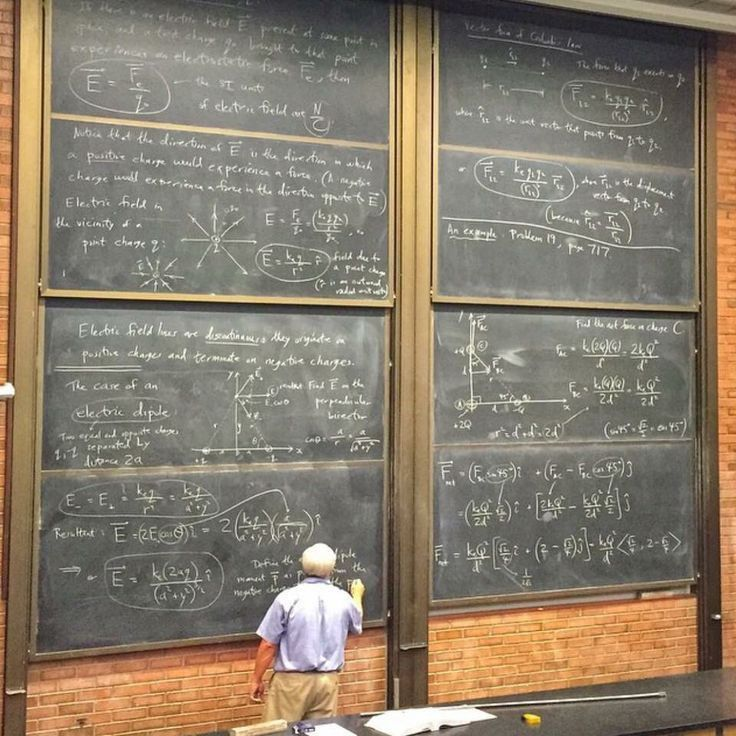 If there is an electric field E⃗ present at some point in
space, and a test charge q₀ brought to that point
experiences an electrostatic force F⃗e, then
E⃗ = F⃗e/q₀ — the SI units
of electric field are N/C
Notice that the direction of E⃗ is the direction in which
a positive charge would experience a force. (A negative
charge would experience a force in the direction opposite to E⃗)
Electric field in
the vicinity of a
point charge q:
E = Fe/q₀
E⃗ = ke q/r² r̂
field due to
a point charge
(r̂ is an outward
radial unit vector)
Electric field lines are discontinuous: they originate on
positive charges and terminate on negative charges.
The case of an
electric dipole
Two equal and opposite charges
separated by
distance 2a
Find E⃗ on the
perpendicular
bisector
cosθ = a/r = a/√(a²+y²)
E₋ = E₊ = ke q/r² = ke q/(a²+y²)
Resultant: E⃗ = (2E₊ cosθ) î = 2 (ke q/(a²+y²))
⇒ or E⃗ = ke(2aq)/(a²+y²)^(3/2) î
Define the dipole
moment p⃗
from the
negative
the
Vector form of Coulomb's law
q₁ r̂₁₂ q₂
The force that q₁ exerts on q₂
F⃗₁₂ = ke q₁ q₂/(r₁₂)² r̂₁₂
where r̂₁₂ is the unit vector that points from q₁ to q₂.
or
where r⃗₁₂ is the displacement
vector from q₁ to q₂
(because r̂₁₂ = r⃗₁₂/r₁₂)
An example: Problem 19, page 717.
Find the net force on charge C
F_AC = ke(2Q)(Q)/d² = 2keQ²/d²
F_BC = ke(Q)(Q)/2d² = keQ²/2d²
+Q
+2Q
45°
r² = d² + d² = 2d²
(sin45° = √2/2 = cos45°)
F⃗net = (F_BC sin45°) î + (F_AC − F_BC cos45°) ĵ
= (keQ²/2d² √2/2) î + [2keQ²/d² − keQ²/2d² √2/2] ĵ
F⃗net = keQ²/d² [√2/4 î + (2 − √2/4) ĵ] = keQ²/d² ⟨√2/4, 2 − √2/4⟩